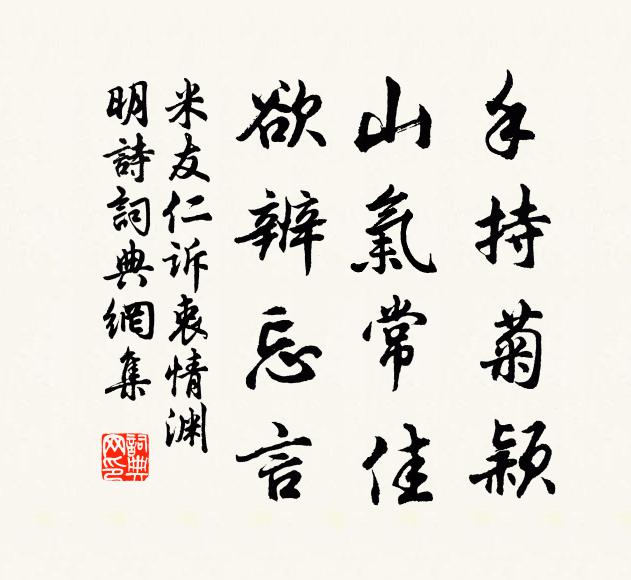 手持菊颖
山氣常佳
欲辨忘言
米友仁诉衷情渊
明詩詞典網集
詞典
网印